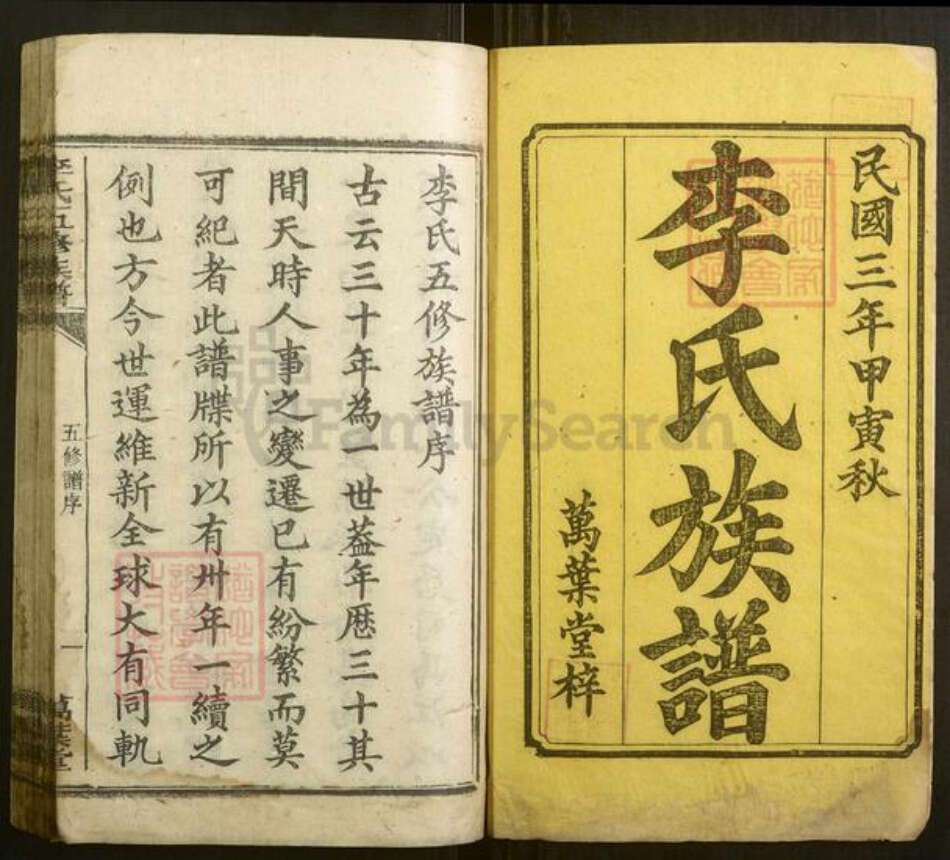 民國三年甲寅秋
李氏族譜
萬葉堂梓
李氏五修族譜序
古云三十年為一世葢年歷三十其
間天時人事之變遷已有紛繁而莫
可紀者此譜牒所以有卅年一續之
例也方今世運維新全球大有同軌
李氏五修族譜
五修譜序
一
萬葉堂
FamilySearch